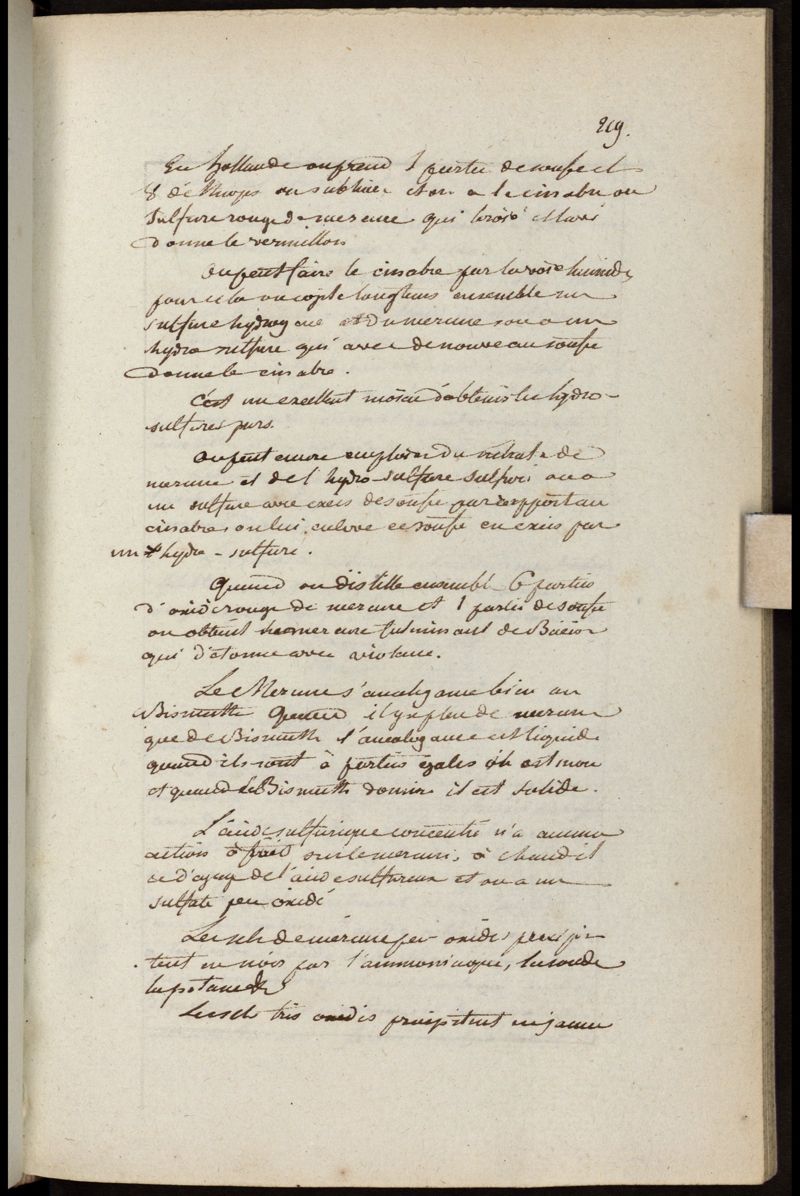 219.
En hollande on prend 1 partie de soufre et
8 d'ethiops on sublime et on a le cinabre ou
Sulfure rouge de mercure qui broié et lavé
donne le vermillon
on peut faire le cinabre par la voie humide,
pour cela on agite longtems ensemble un
sulfure hydrogéné et du mercure on a un
hydro sulfure qui avec de nouveau soufre
donne le cinabre.
C'est un excellent moien d'obtenir les hydro-
sulfures purs.
on peut encore emploier du nitrate de
mercure et de l'hydro-sulfure sulfuré on a
un sulfure avec excès de soufre par rapport au
cinabre, on lui enleve ce soufre en excès par
un hydro-sulfure.
Quand on distille ensemble 6 parties
d'oxide rouge de mercure et 1 partie de soufre
on obtient le mercure fulminant de Baien
qui détonne avec violence.
Le Mercure s'amalgame bien au
Bismuth Quand il y a plus de mercure
que de Bismuth l'amalgame est liquide
quand ils sont à parties égales il est mou
et quand le Bismuth domine il est solide.
L'acide sulfurique concentré n'a aucune
action à froid sur le mercure, à chaud il
se dégage de l'acide sulfureux et on a un
sulfate peu oxidé
Les sels de mercure peu oxidés précipi-
tent en noir par l'ammoniaque, la soude
la potasse
Les sels très oxidés précipitent en jaune